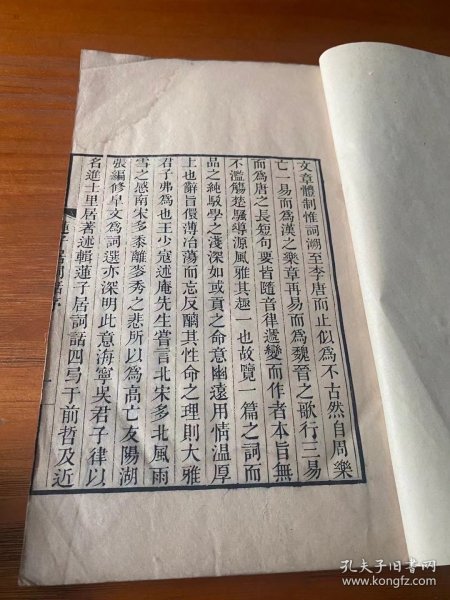 文章體制惟詞溯至李唐而止似為不古然自周樂
亡一易而為漢之樂章再易而為魏晉之歌行三易
而為唐之長短句要皆隨音律遞變而作者本旨無
不濫觴楚騷導源風雅其趣一也故覽一篇之詞而
品之純駁學之淺深如或貢之命意幽遠用情溫厚
上也辭旨儇薄冶蕩而忘反醨其性命之理則大雅
君子弗為也王少寇述庵先生嘗言北宋多北風雨
雪之感南宋多黍離麥秀之悲所以為高亡友陽湖
張編修皋文為詞選亦深明此意海寧吳君子律以
名進士里居著述輯蓮子居詞話四㢧于前哲及近
蓮子居詞話序
一
孔夫子旧书网
www.kongfz.com